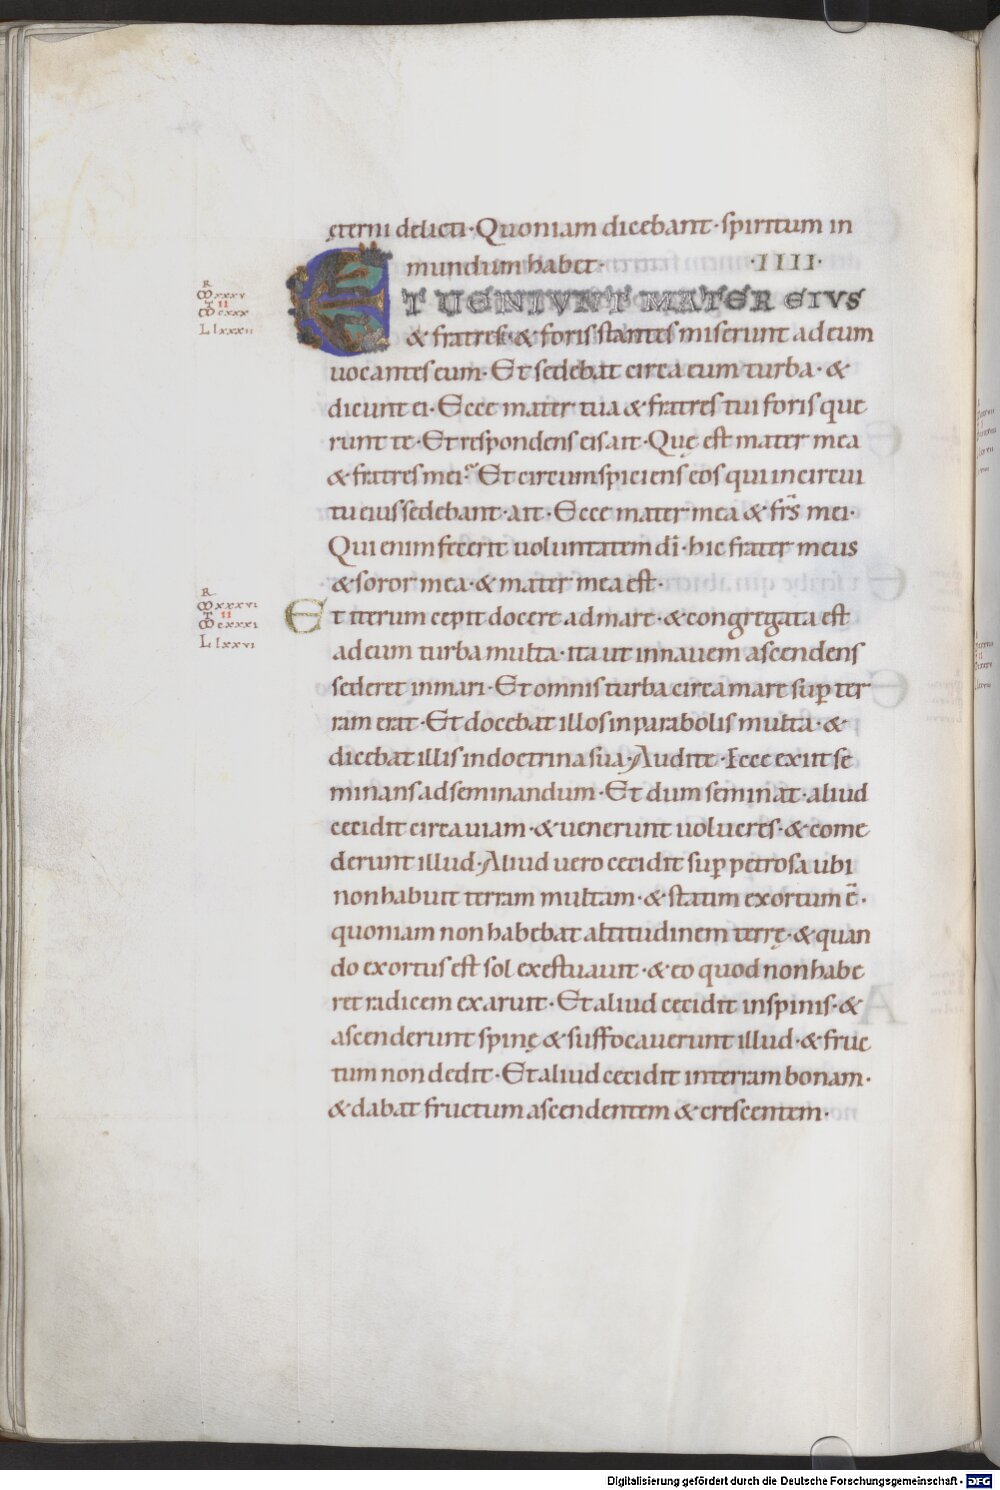 ęterni delicti · Quoniam dicebant · spiritum in
mundum habet · · IIII ·
ET UENIUNT MATER EIVS
& fratres · & foris stantes miserunt ad eum
uocantes eum · Et sedebat circa eum turba · &
dicunt ei · Ecce mater tua & fratres tui foris que
runt te · Et respondens eis ait · Quę est mater mea
& fratres mei? Et circumspiciens eos qui in circui
tu eius sedebant · ait · Ecce mater mea & frs̄ mei ·
Qui enim fecerit uoluntatem dī · hic frater meus
& soror mea · & mater mea est ·
Et iterum cepit docere ad mare · & congregata est
ad eum turba multa · ita ut in nauem ascendens
sederet in mari · Et omnis turba circa mare sup ter
ram erat · Et docebat illos in parabolis multa · &
dicebat illis in doctrina sua · Audite · Ecce exiit se
minans ad seminandum · Et dum seminat · aliud
cecidit circa uiam · & uenerunt uolucres · & come
derunt illud · Aliud uero cecidit sup petrosa ubi
non habuit terram multam · & statim exortum ē ·
quoniam non habebat altitudinem terrę · & quan
do exortus est sol exestuauit · & eo quod non habe
ret radicem exaruit · Et aliud cecidit in spinis · &
ascenderunt spinę & suffocauerunt illud · & fruc
tum non dedit · Et aliud cecidit in terram bonam ·
& dabat fructum ascendentem & crescentem ·
R
M xxxv
T II
M cxxx
L lxxxii
R
M xxxvi
T II
M cxxxi
L lxxvi
Digitalisierung gefördert durch die Deutsche Forschungsgemeinschaft - DFG